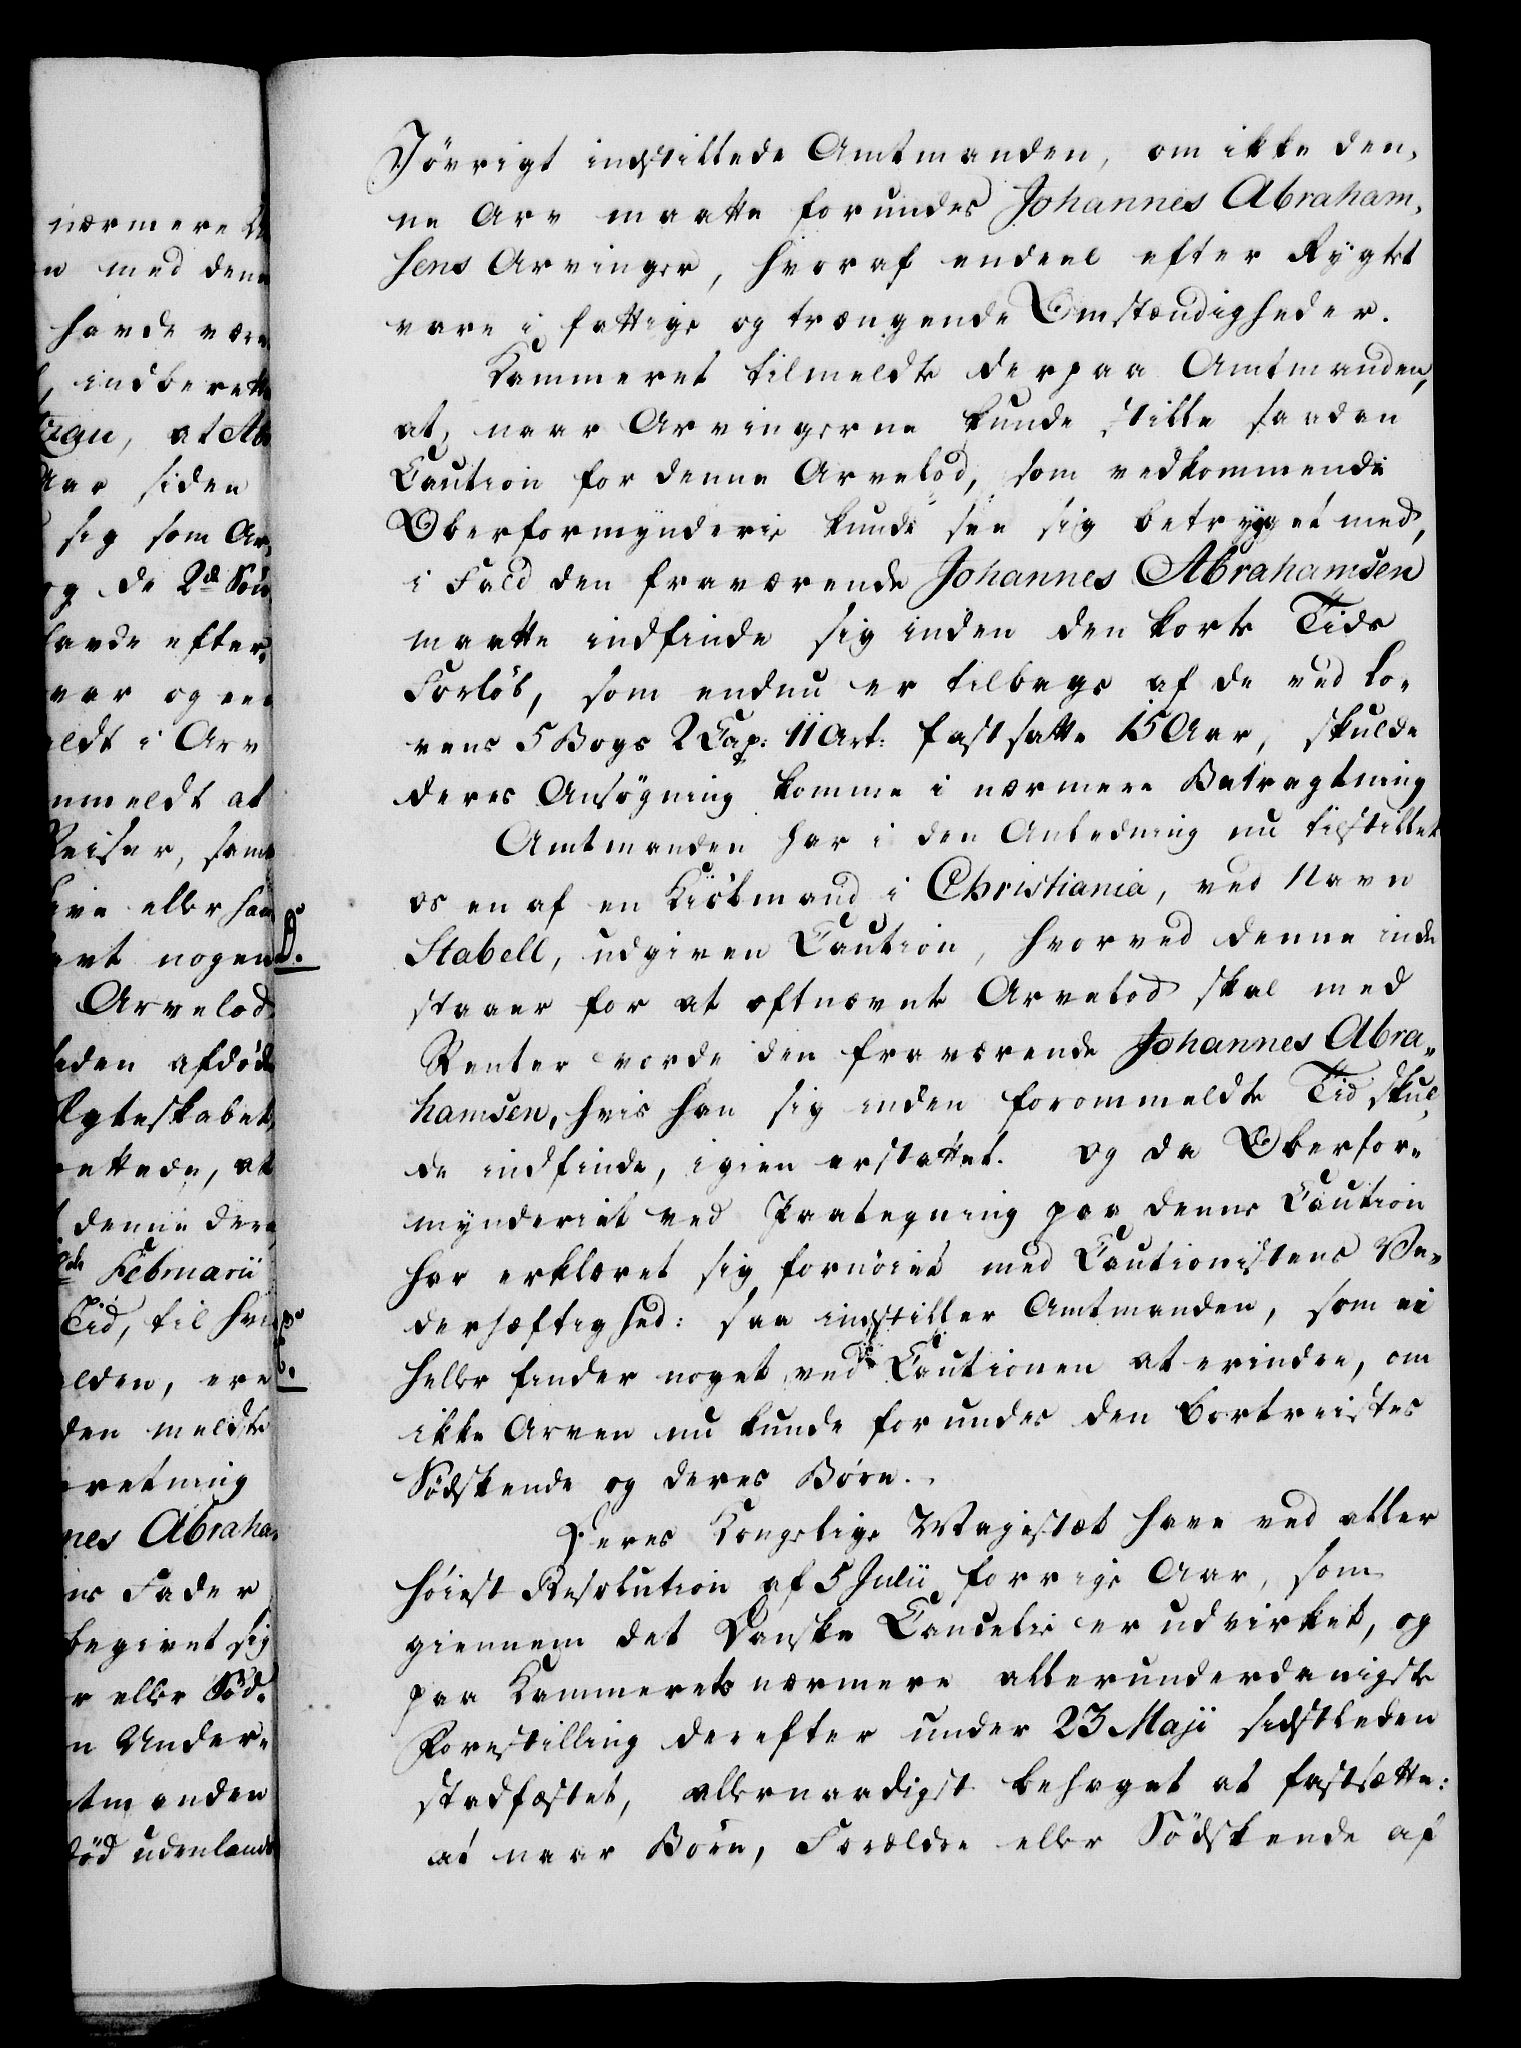 nærmere
n med denn
havde være
indberette
tzau, at Abr
Aar siden
sig som Ar,
og de 2de Sön
havde efter,
var og en
eldt i Arv
nmeldt at
Reiser, samt
Live eller haa
evt nogen
Arvelod
eden afdöde
Egteskabet,
ettede, at
denne der,
de Februarii
Tid, til hvi
lden, ere
den meldte
retning
nes Abraha,
ns Fader
begivet sig
r eller Söd,
n Under,
tmanden
död udenlands
D.
Jövrigt indstillede Amtmanden, om ikke den,
ne Arv maatte forundes Johannes Abraham,
sens Arvinger, hvoraf endeel efter Rygtet
vare i fattige og trængende Omstændigheder.
Kammeret tilmeldte derpaa Amtmanden,
at, naar Arvingerne kunde stille saadan
Caution for denne Arvelod, som vedkommende
Oberformynderie kunde see sig betrygget med,
i Fald den fraværende Johannes Abrahamsen
maatte indfinde sig inden den korte Tids
Forlöb, som endnu er tilbage af de ved Lo,
vens 5 Bogs 2 Cap: 11 Art: fastsatte 15 Aar, skulde
deres Ansögning komme i nærmere Betragtning
Amtmanden har i den Anledning nu tilstillet
os en af en Kiöbmand i Christiania, ved Navn
Stabell, udgiven Caution, hvorved denne inde
staaer for at oftnævnte Arvelod skal med
Renter vorde den fraværende Johannes Abra,
hamsen, hvis han sig inden forommeldte Tid skul,
de indfinde, igien erstattet. Og da Oberfor,
mynderiet ved Paategning paa denne Caution
har erklæret sig fornöiet med Cautionistens Ve,
derhæftighed: saa indstiller Amtmanden, som ei
heller finder noget ved Cautionen at erindre, om
ikke Arven nu kunde forundes den bortreistes
Södskende og deres Börn.
Deres Kongelige Majestæt have ved aller
höiest Resolution af 5 Julii forrige Aar, som
giennem det Danske Cancelie er udvirket, og
paa Kammerets nærmere allerunderdanigste
Forestilling derefter under 23 Maji sidstleden
stadfæstet, allernaadigst behaget at fastsætte:
at naar Börn, Forældre eller Södskende af